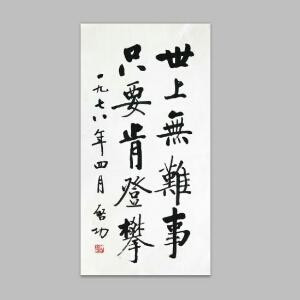 世上無難事
只要肯登攀
一九七八年四月 啓功